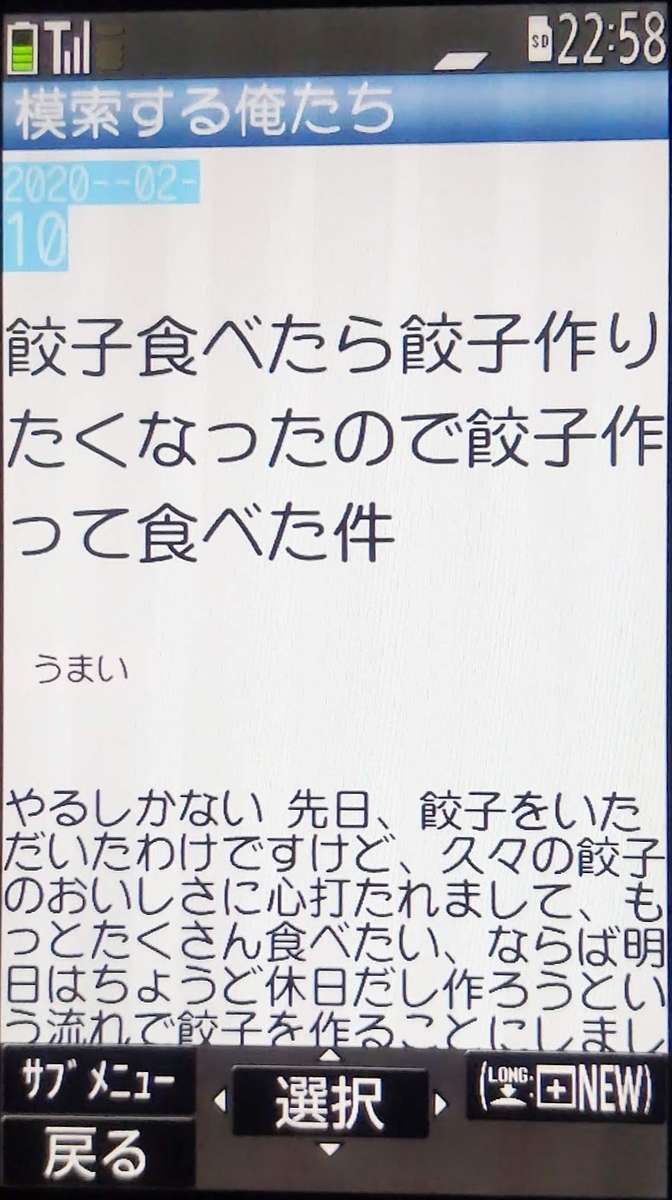 SD 22:58
模索する俺たち
2020--02-
10
餃子食べたら餃子作り
たくなったので餃子作
って食べた件
うまい
やるしかない 先日、餃子をいた
だいたわけですけど、久々の餃子
のおいしさに心打たれまして、も
っとたくさん食べたい、ならば明
日はちょうど休日だし作ろうとい
う流れで餃子を作ることにしまし
ｻﾌﾞﾒﾆｭｰ
選択
(LONG:+NEW)
戻る